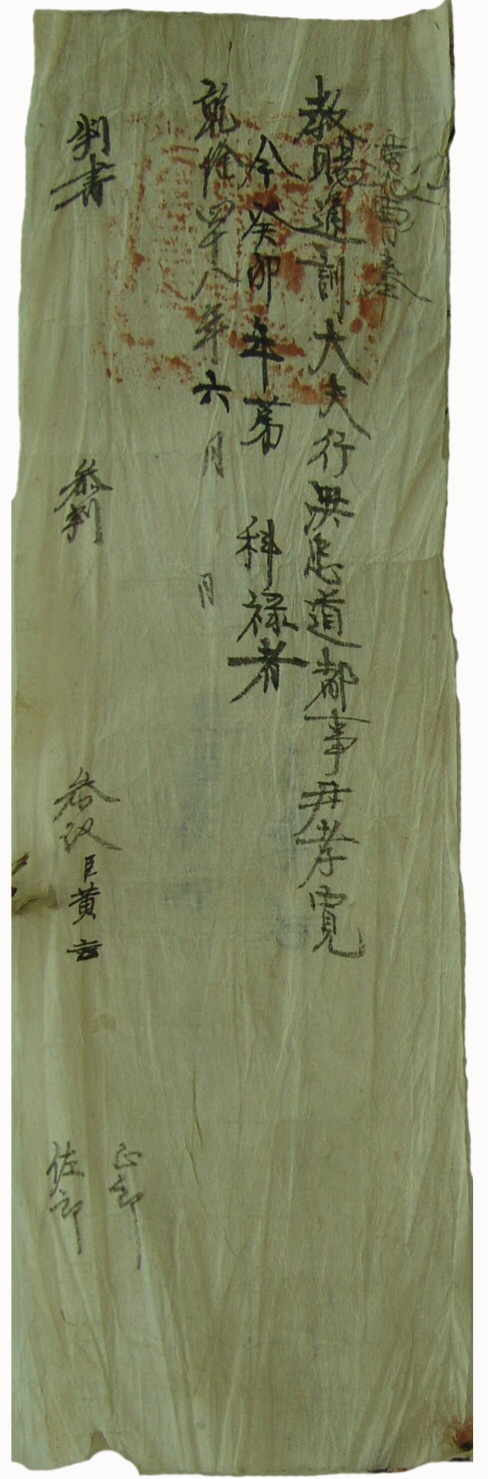 曹奉
教賜通訓大夫行洪忠道都事尹孝寬
今癸卯年第　科祿者
乾隆四十八年六月　日
判書　參判　參議臣黃
正郎
佐郎